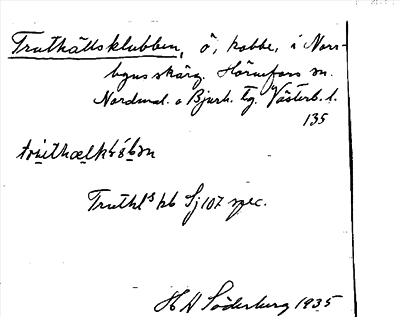 Truthällsklubben, ö, kobbe, i Norr-
byns skärg. Hörnefors sn.
Nordmal. o Bjurh. tg. Västerb. l.
135
Truthls kb Sj 107 spec.
H A Söderberg 1935